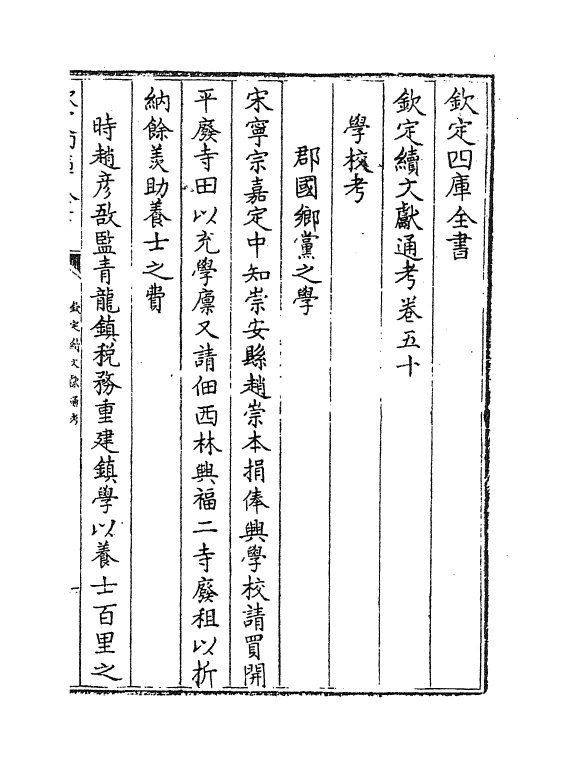 欽定四庫全書
欽定續文獻通考卷五十
學校考
郡國鄉黨之學
宋寧宗嘉定中知崇安縣趙崇本捐俸興學校請買開
平廢寺田以充學廩又請佃西林興福二寺廢租以折
納餘羡助養士之費
時趙彥敔監青龍鎮税務重建鎮學以養士百里之
欽定續文獻通考
一